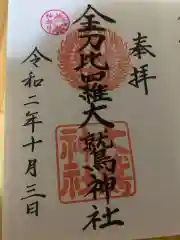 奉拝
金刀比羅大鷲神社
令和二年十月三日